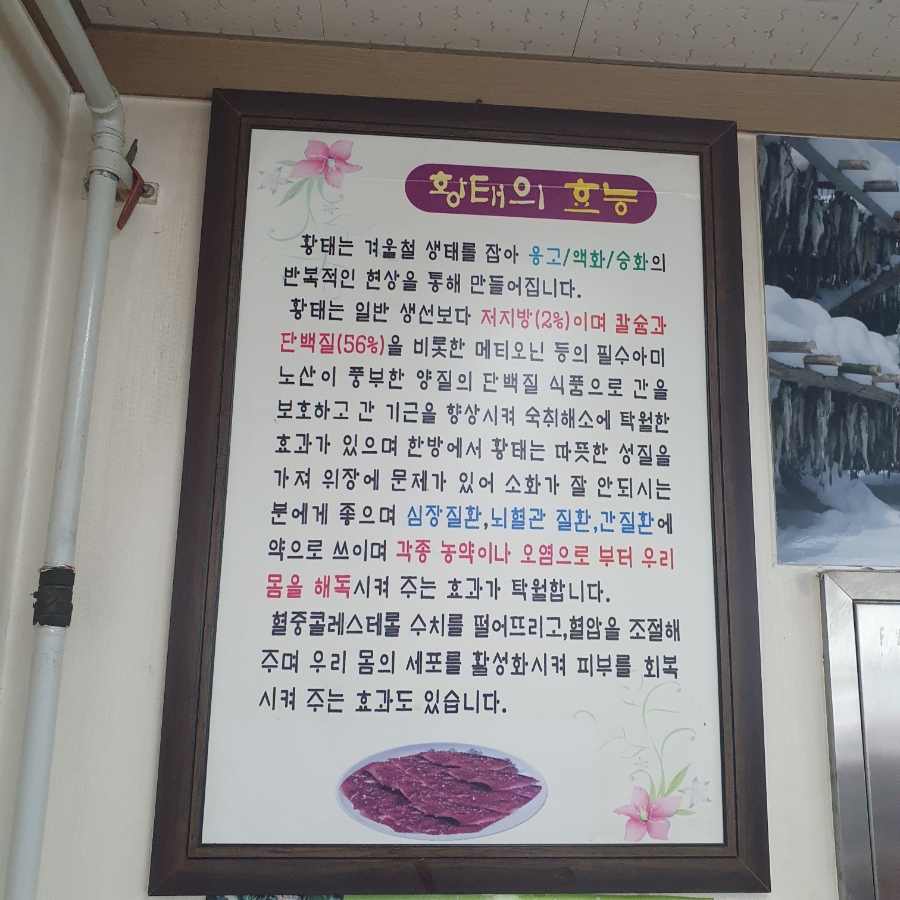 황태의 효능
황태는 겨울철 생태를 잡아 응고/액화/승화의
반복적인 현상을 통해 만들어집니다.
황태는 일반 생선보다 저지방(2%)이며 칼슘과
단백질(56%)을 비롯한 메티오닌 등의 필수아미
노산이 풍부한 양질의 단백질 식품으로 간을
보호하고 간 기근을 향상시켜 숙취해소에 탁월한
효과가 있으며 한방에서 황태는 따뜻한 성질을
가져 위장에 문제가 있어 소화가 잘 안되시는
분에게 좋으며 심장질환,뇌혈관 질환,간질환에
약으로 쓰이며 각종 농약이나 오염으로 부터 우리
몸을 해독시켜 주는 효과가 탁월합니다.
혈중콜레스테롤 수치를 떨어뜨리고,혈압을 조절해
주며 우리 몸의 세포를 활성화시켜 피부를 회복
시켜 주는 효과도 있습니다.